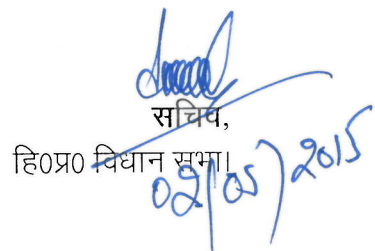 सचिव,
हि0प्र0 विधान सभा।
02/05/2015